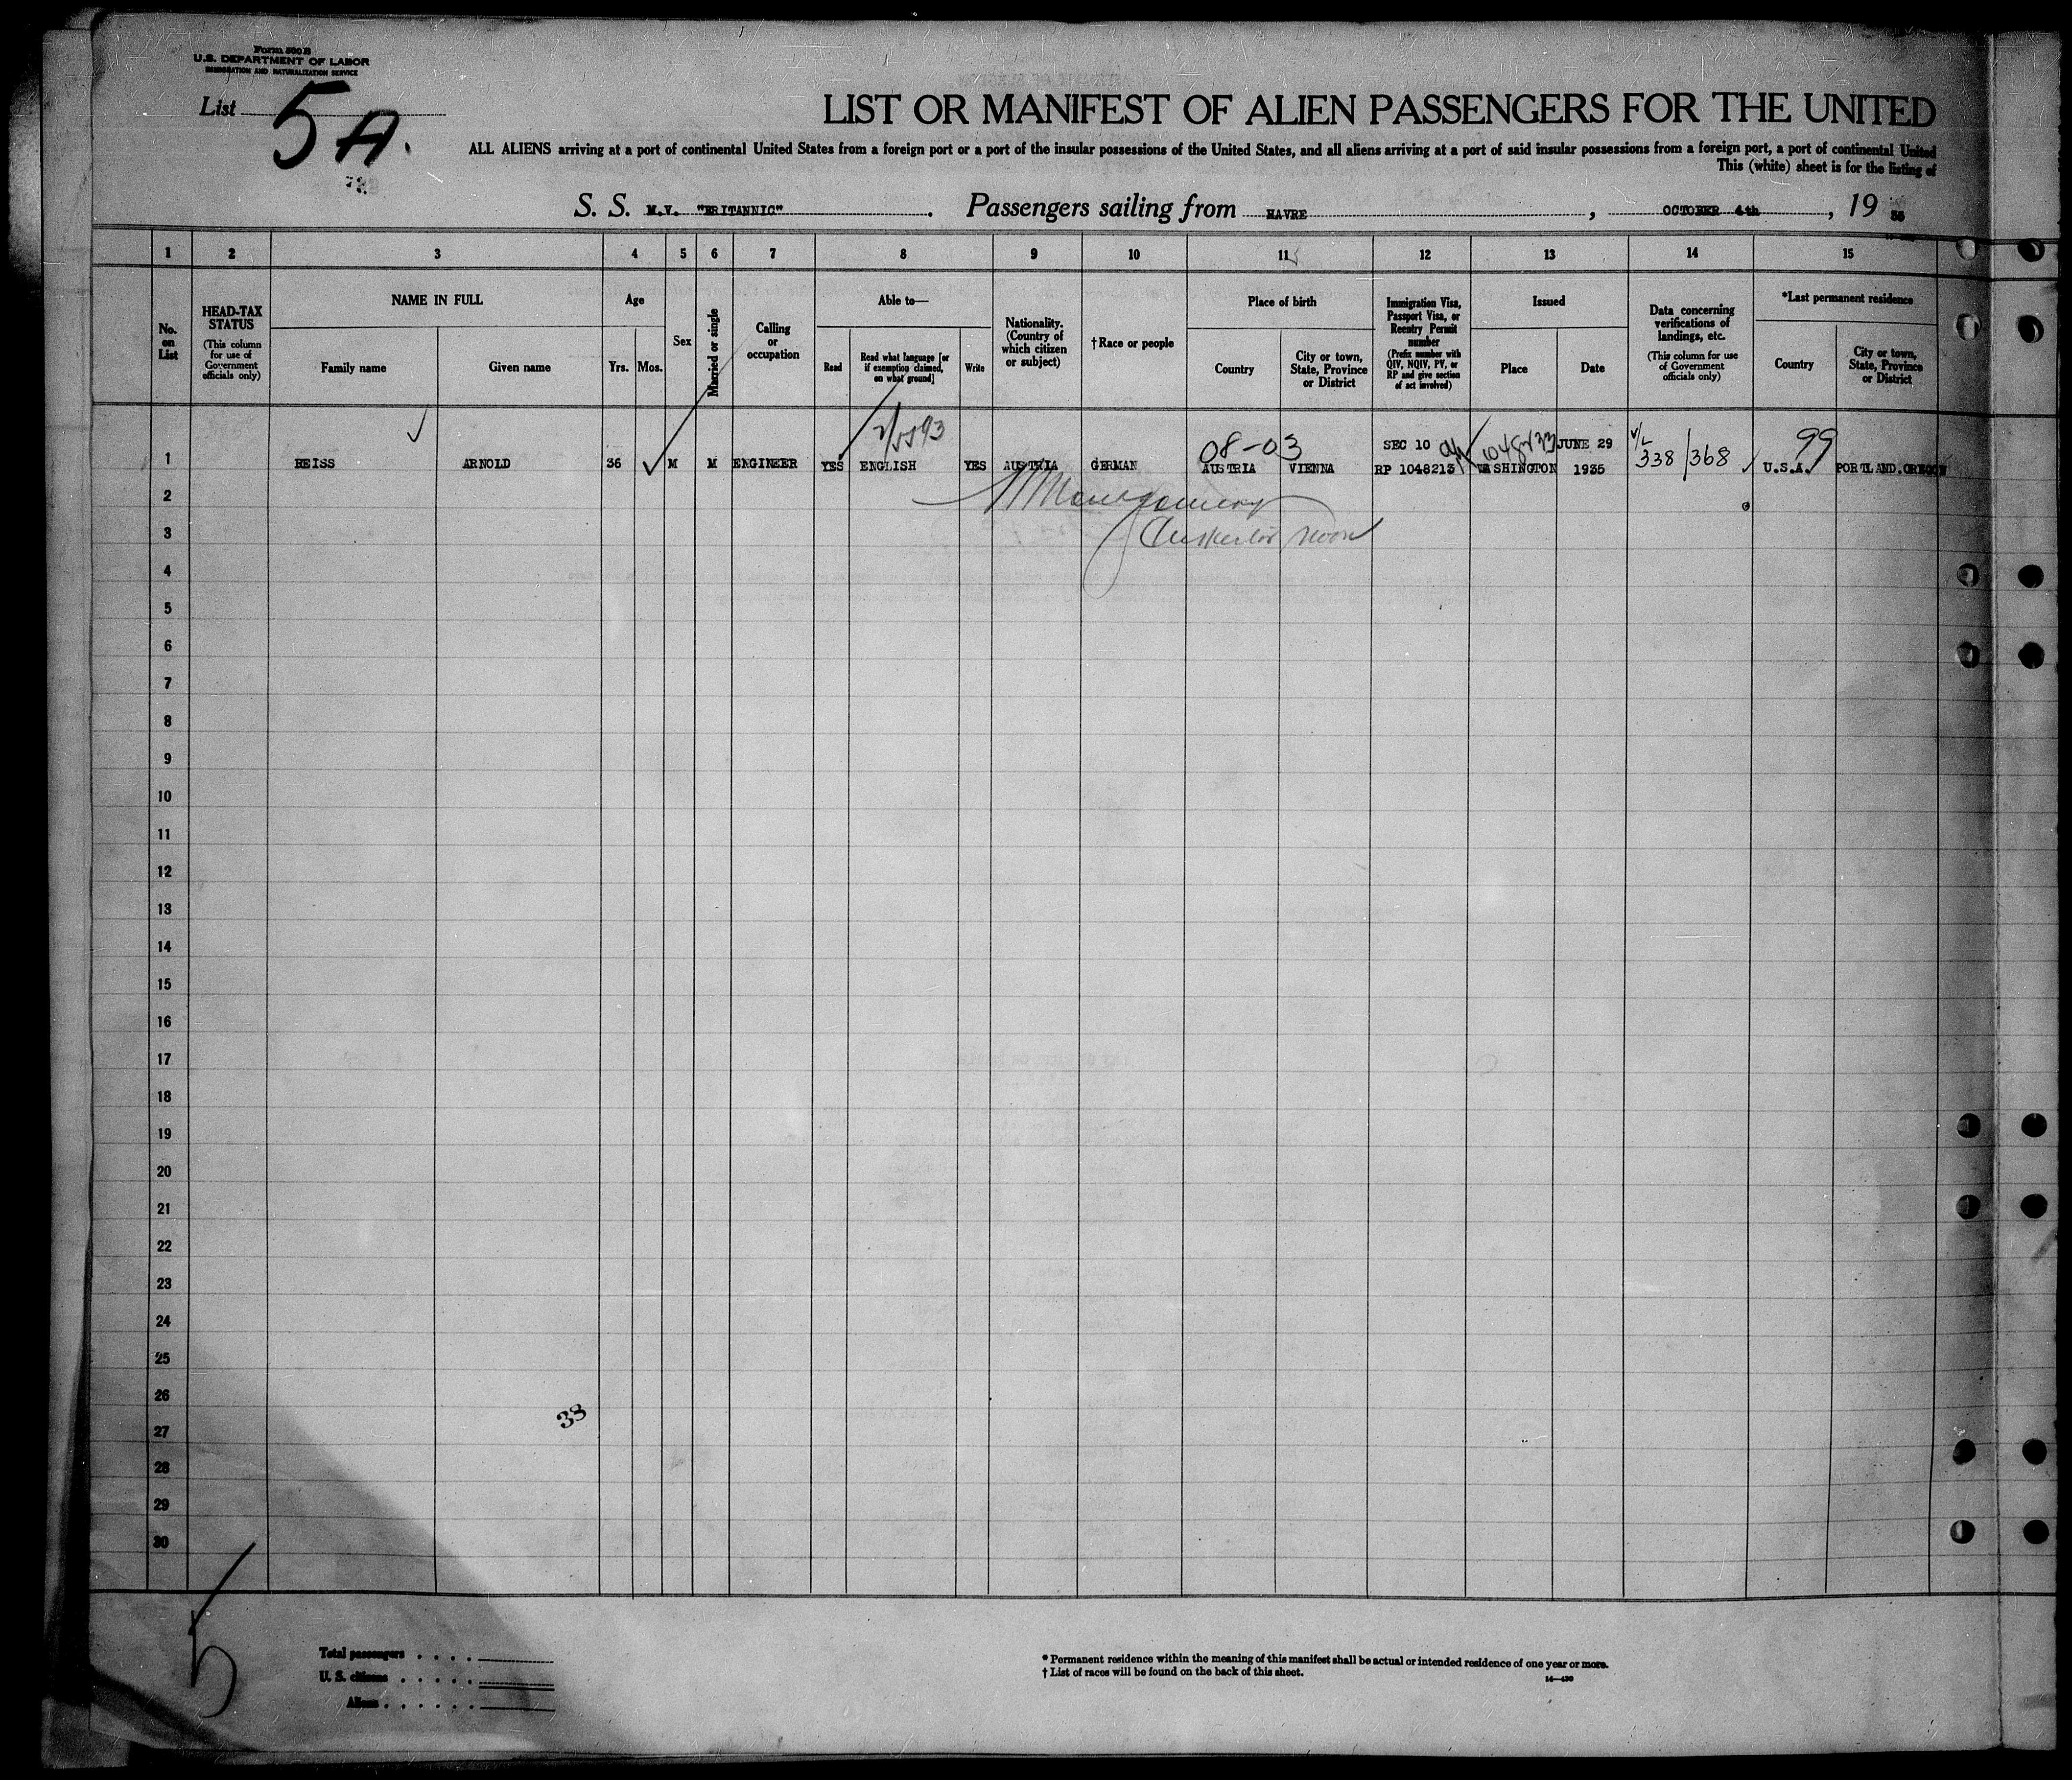 Form 500 B
U.S. DEPARTMENT OF LABOR
IMMIGRATION AND NATURALIZATION SERVICE
List 5 A.
LIST OR MANIFEST OF ALIEN PASSENGERS FOR THE UNITED
ALL ALIENS arriving at a port of continental United States from a foreign port or a port of the insular possessions of the United States, and all aliens arriving at a port of said insular possessions from a foreign port, a port of continental United
This (white) sheet is for the listing of
S. S. M.V. "BRITANNIC". Passengers sailing from HAVRE, OCTOBER 4th, 19 35
1 2 3 4 5 6 7 8 9 10 11 12 13 14 15
No. on List
HEAD-TAX STATUS (This column for use of Government officials only)
NAME IN FULL
Family name
Given name
Age
Yrs.
Mos.
Sex
Married or single
Calling or occupation
Able to—
Read
Read what language [or if exemption claimed, on what ground]
Write
Nationality. (Country of which citizen or subject)
†Race or people
Place of birth
Country
City or town, State, Province or District
Immigration Visa, Passport Visa, or Reentry Permit number (Prefix number with QIV, NQIV, PV, or RP and give section of act involved)
Issued
Place
Date
Data concerning verifications of landings, etc. (This column for use of Government officials only)
*Last permanent residence
Country
City or town, State, Province or District
08-03 SEC 10 JUNE 29 V/L 99
1 REISS ARNOLD 36 M M ENGINEER YES ENGLISH YES AUSTRIA GERMAN AUSTRIA VIENNA RP 1048213 WASHINGTON 1935 338/368 U.S.A. PORTLAND.OREGON
2 Montgomery
3
4
5
6
7
8
9
10
11
12
13
14
15
16
17
18
19
20
21
22
23
24
25
26
33
27
28
29
30
5
Total passengers
U. S. citizens
Aliens
* Permanent residence within the meaning of this manifest shall be actual or intended residence of one year or more.
† List of races will be found on the back of this sheet.
14—430